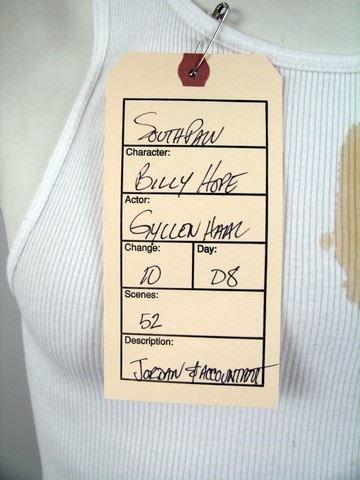 SOUTHPAW
Character:
BILLY HOPE
Actor:
GYLLENHAAL
Change: Day:
10 D8
Scenes:
52
Description:
JORDAN & ACCOUNTANT